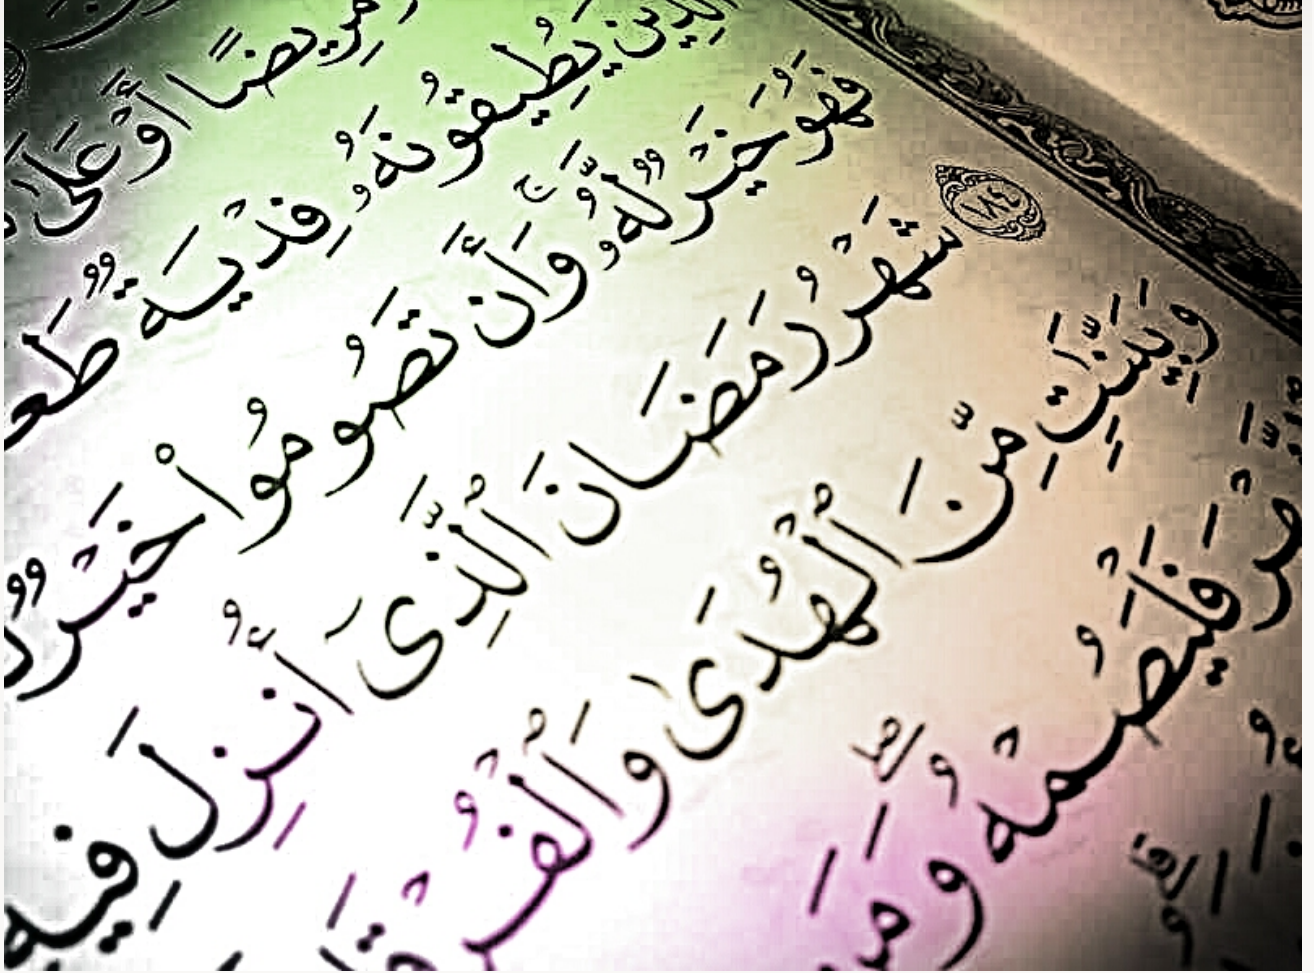 مَّرِيضًا أَوْ عَلَىٰ
ٱلَّذِينَ يُطِيقُونَهُۥ فِدْيَةٌ
فَهُوَ خَيْرٌ لَّهُۥ ۚ وَأَن تَصُومُوا۟ خَيْرٌ
١٨٤ شَهْرُ رَمَضَانَ ٱلَّذِىٓ أُنزِلَ فِيهِ
وَبَيِّنَٰتٍ مِّنَ ٱلْهُدَىٰ وَٱلْفُرْقَا
فَلْيَصُمْهُ ۖ وَمَن